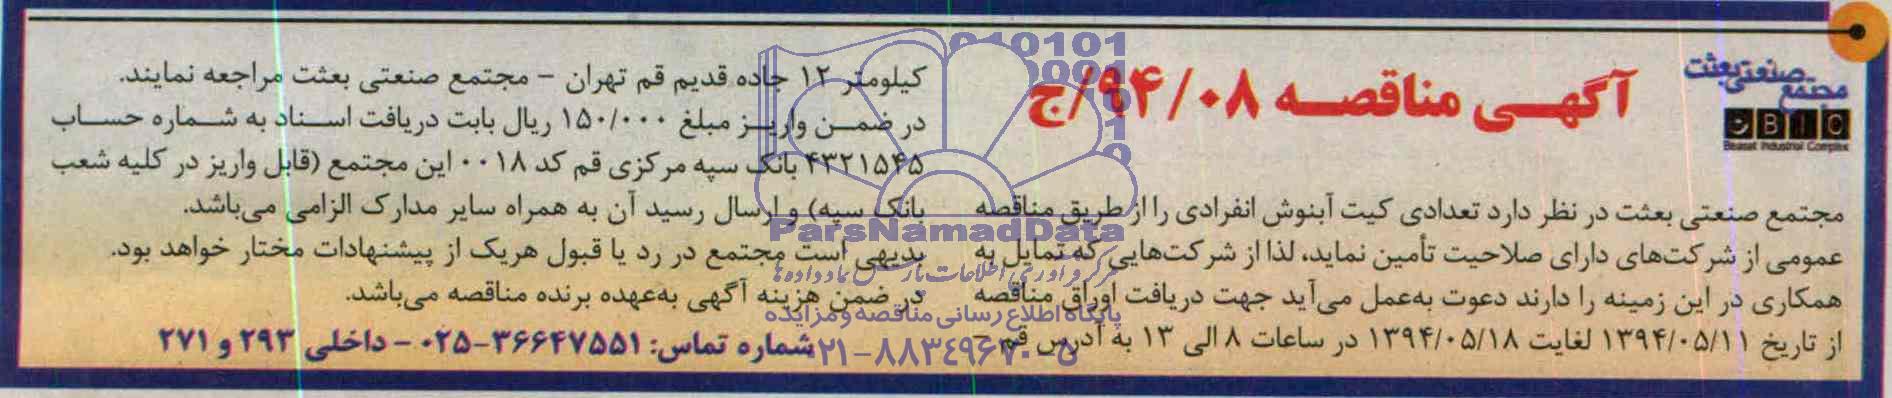 مجتمع صنعتی بعثت
BIC
Beasat Industrial Complex
آگهـی مناقصـه ۹۴/۰۸/ج
مجتمع صنعتی بعثت در نظر دارد تعدادی کیت آبنوش انفرادی را از طریق مناقصه
عمومی از شرکت‌های دارای صلاحیت تأمین نماید، لذا از شرکت‌هایی که تمایل به
همکاری در این زمینه را دارند دعوت به‌عمل می‌آید جهت دریافت اوراق مناقصه
از تاریخ ۱۳۹۴/۰۵/۱۱ لغایت ۱۳۹۴/۰۵/۱۸ در ساعات ۸ الی ۱۳ به آدرس قم –
کیلومتر ۱۲ جاده قدیم قم تهران – مجتمع صنعتی بعثت مراجعه نمایند.
در ضمـن واریـز مبلغ ۱۵۰/۰۰۰ ریال بابت دریافت اسـناد به شـماره حسـاب
۴۳۲۱۵۴۵ بانک سپه مرکزی قم کد ۰۰۱۸ این مجتمع (قابل واریز در کلیه شعب
بانک سپه) و ارسال رسید آن به همراه سایر مدارک الزامی می‌باشد.
بدیهی است مجتمع در رد یا قبول هریک از پیشنهادات مختار خواهد بود.
در ضمن هزینه آگهی به‌عهده برنده مناقصه می‌باشد.
شماره تماس: ۳۶۶۴۷۵۵۱-۰۲۵ – داخلی ۲۹۳ و ۲۷۱
ParsNamadData
پایگاه اطلاع رسانی مناقصه و مزایده
۰۲۱-۸۸۳۴۹۶۷۰-۵